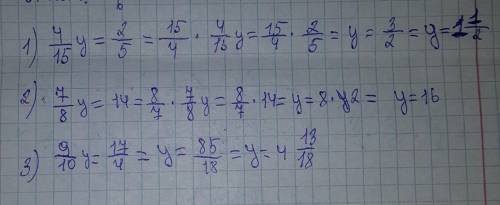 1) 4/15 y = 2/5 = 15/4 · 4/15 y = 15/4 · 2/5 = y = 3/2 = y = 1 1/2
2) 7/8 y = 14 = 8/7 · 7/8 y = 8/7 · 14 = y = 8 · y2 = y = 16
3) 9/10 y = 17/4 = y = 85/18 = y = 4 13/18